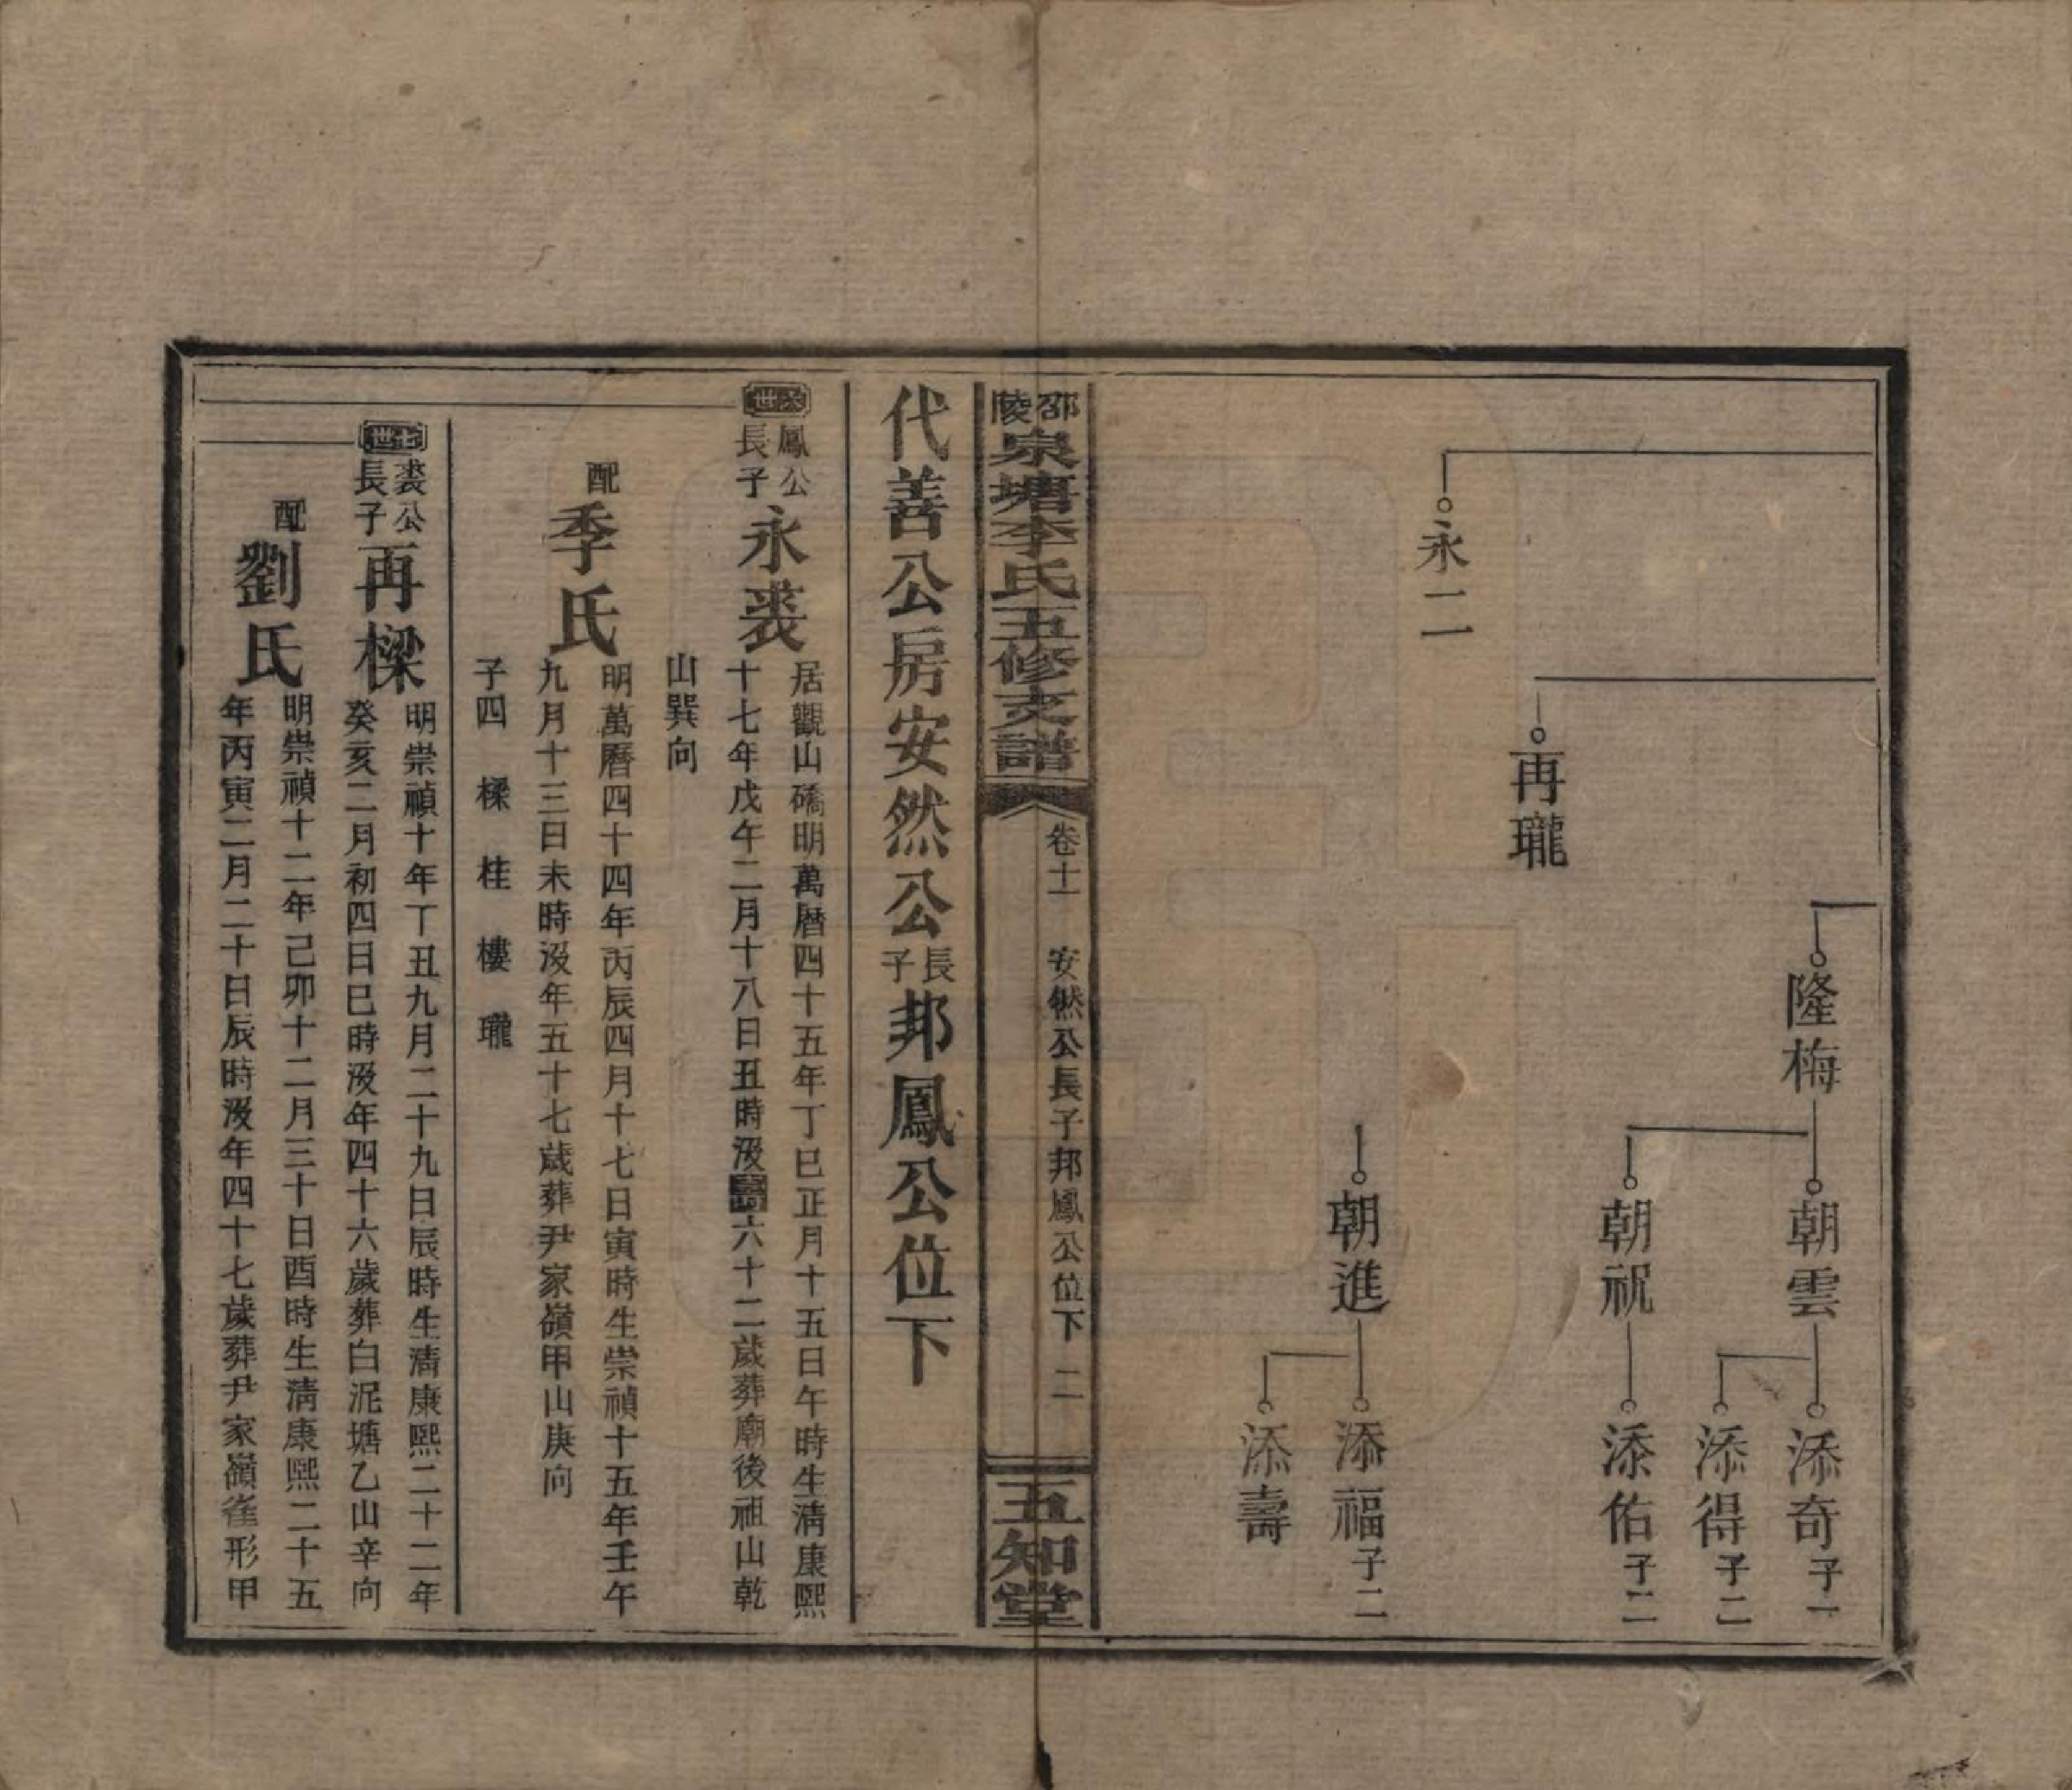 永二
再瓏
隆梅
朝雲
朝祝
朝進
添奇 子一
添得 子二
添佑 子二
添福 子二
添壽
邵陵泉塘李氏五修支譜
卷十一 安然公長子邦鳳公位下 二
五知堂
代善公房安然公長子邦鳳公位下
六世
鳳公長子
永裘
居觀山礄明萬曆四十五年丁巳正月十五日午時生清康熙
十七年戊午二月十八日丑時歿壽六十二歲葬廟後祖山乾
山巽向
配
季氏
明萬曆四十四年丙辰四月十七日寅時生崇禎十五年壬午
九月十三日未時歿年五十七歲葬尹家嶺甲山庚向
子四 樑 桂 樓 瓏
七世
裘公長子
再樑
明崇禎十年丁丑九月二十九日辰時生清康熙二十二年
癸亥二月初四日巳時歿年四十六歲葬白泥塘乙山辛向
配
劉氏
明崇禎十二年己卯十二月三十日酉時生清康熙二十五
年丙寅二月二十日辰時歿年四十七歲葬尹家嶺雀形甲